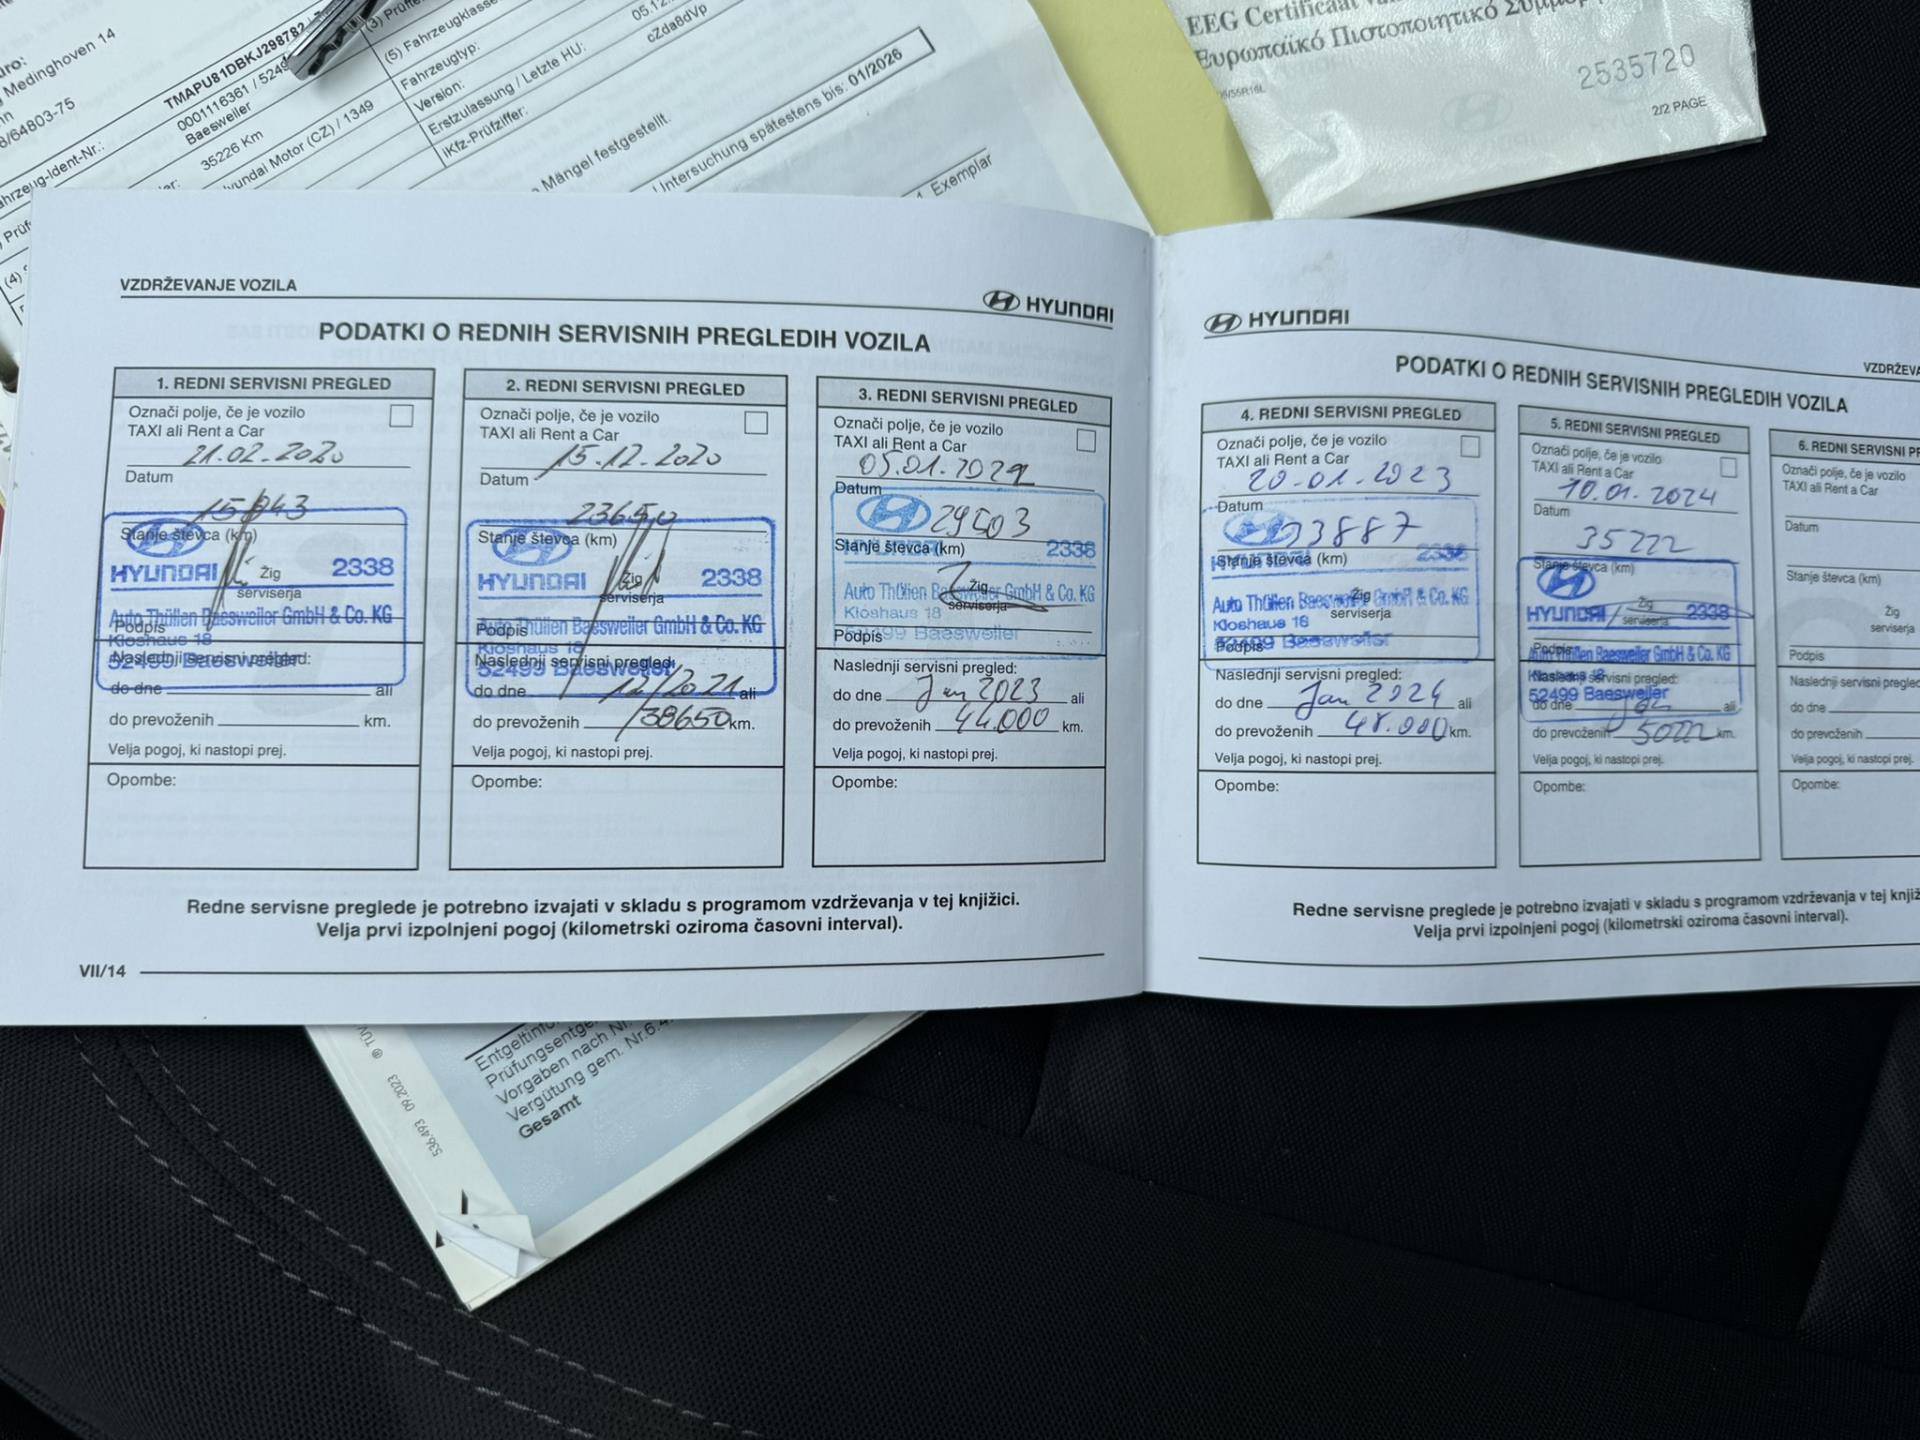 Medinghoven 14
TMAPU81DBKJ298782
0001116361
Baesweiler
35226 Km
Hyundai Motor (CZ) / 1349
(5) Fahrzeugklasse
Fahrzeugtyp:
Version:
Erstzulassung / Letzte HU:
IKfz-Prüfziffer:
cZda8dVp
Mängel festgestellt.
Untersuchung spätestens bis: 01/2026
1. Exemplar
EEG Certificaat
Ευρωπαϊκό Πιστοποιητικό
2535720
2/2 PAGE
VZDRŽEVANJE VOZILA
HYUNDAI
PODATKI O REDNIH SERVISNIH PREGLEDIH VOZILA
1. REDNI SERVISNI PREGLED
Označi polje, če je vozilo
TAXI ali Rent a Car
21.02.2020
Datum
Stanje števca (km)
HYUNDAI
Žig
2338
serviserja
Auto Thüllen Baesweiler GmbH & Co. KG
Podpis
Kloshaus 18
52499 Baesweiler
Naslednji servisni pregled:
do dne
ali
do prevoženih
km.
Velja pogoj, ki nastopi prej.
Opombe:
2. REDNI SERVISNI PREGLED
Označi polje, če je vozilo
TAXI ali Rent a Car
15.12.2020
Datum
23650
Stanje števca (km)
HYUNDAI
Žig
2338
serviserja
Auto Thüllen Baesweiler GmbH & Co. KG
Podpis
Kloshaus 18
52499 Baesweiler
Naslednji servisni pregled:
do dne 12/2021 ali
do prevoženih 38650 km.
Velja pogoj, ki nastopi prej.
Opombe:
3. REDNI SERVISNI PREGLED
Označi polje, če je vozilo
TAXI ali Rent a Car
05.01.2022
Datum
29503
Stanje števca (km)
2338
Auto Thüllen Baesweiler GmbH & Co. KG
Žig
serviserja
Kloshaus 18
Podpis
52499 Baesweiler
Naslednji servisni pregled:
do dne Jan 2023 ali
do prevoženih 44.000 km.
Velja pogoj, ki nastopi prej.
Opombe:
Redne servisne preglede je potrebno izvajati v skladu s programom vzdrževanja v tej knjižici.
Velja prvi izpolnjeni pogoj (kilometrski oziroma časovni interval).
VII/14
HYUNDAI
PODATKI O REDNIH SERVISNIH PREGLEDIH VOZILA
4. REDNI SERVISNI PREGLED
Označi polje, če je vozilo
TAXI ali Rent a Car
20.01.2023
Datum
33887
Stanje števca (km)
2338
Auto Thüllen Baesweiler GmbH & Co. KG
Žig
serviserja
Kloshaus 18
Podpis
52499 Baesweiler
Naslednji servisni pregled:
do dne Jan 2024 ali
do prevoženih 48.000 km.
Velja pogoj, ki nastopi prej.
Opombe:
5. REDNI SERVISNI PREGLED
Označi polje, če je vozilo
TAXI ali Rent a Car
10.01.2024
Datum
35222
Stanje števca (km)
HYUNDAI
Žig
2338
serviserja
Podpis
Auto Thüllen Baesweiler GmbH & Co. KG
Naslednji servisni pregled:
52499 Baesweiler
do dne
ali
do prevoženih 50222 km.
Velja pogoj, ki nastopi prej.
Opombe:
6. REDNI SERVISNI
Označi polje, če je vozilo
TAXI ali Rent a Car
Datum
Stanje števca (km)
Žig
serviserja
Podpis
Naslednji servisni
do dne
do prevoženih
Velja pogoj, ki nastopi prej.
Opombe:
Redne servisne preglede je potrebno izvajati v skladu s programom vzdrževanja v tej
Velja prvi izpolnjeni pogoj (kilometrski oziroma časovni interval).
Vorgaben nach Nr.
Vergütung gem. Nr.6.4
Gesamt
536.493 09.2023